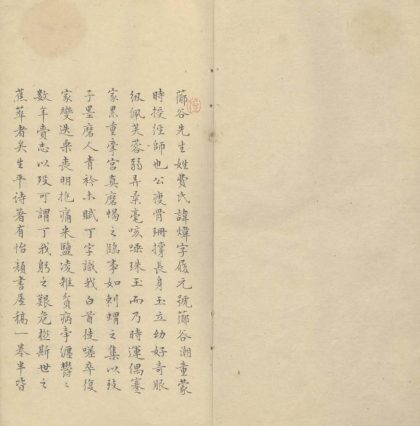 薌谷先生姓費氏諱煒字履元號薌谷湖童蒙
時授經師也公瘦骨珊撐長身玉立幼好奇服
紉佩芙蓉弱弄柔毫咳唾珠玉而乃時運偶蹇
家累重摩宮真磨蝎之臨事如刺蝟之集以致
子墨磨人青衿未賦丁字識我白首徒嗟卒復
家變迭乘喪明抱痛米鹽凌雜貧病牽纏鬱鬱
數年賫志以歿可謂丁我躬之艱危極斯世之
蕉萃者矣生平詩著有怡顏書屋稿一卷半皆